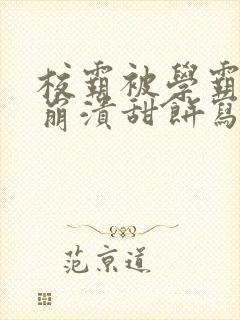 校霸被學霸
崩潰甜餅寫
范京道